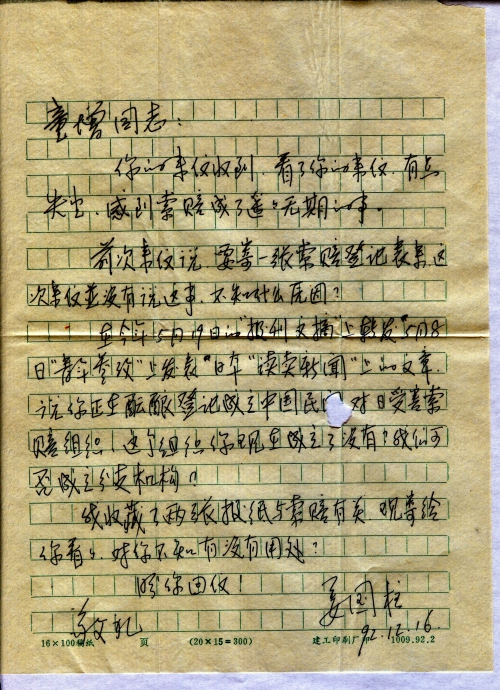 童增同志：
你的来仪收到，看了你的来仪，有点
失望，感到索赔成了遥遥无期的事。
前次来仪说，要寄一张索赔登记表来，这
次来仪並没有说这事，不知什么原因？
在今年5月19日的"报刊文摘"上转发"5月8
日"青年参考"上发表"日本"读卖新闻"上的文章，
说你正在酝酿登记成立中国民 对日受害索
赔组织，这个组织你现在成立了没有？我们可
否成立分支机构？
我收藏了两张报纸与索赔有关，现寄给
你看看，对你不知有没有用处？
盼你回仪！
姜国柱
92.12.16.
16×100稿纸 页 (20×15=300) 建工印刷厂 1009.92.2